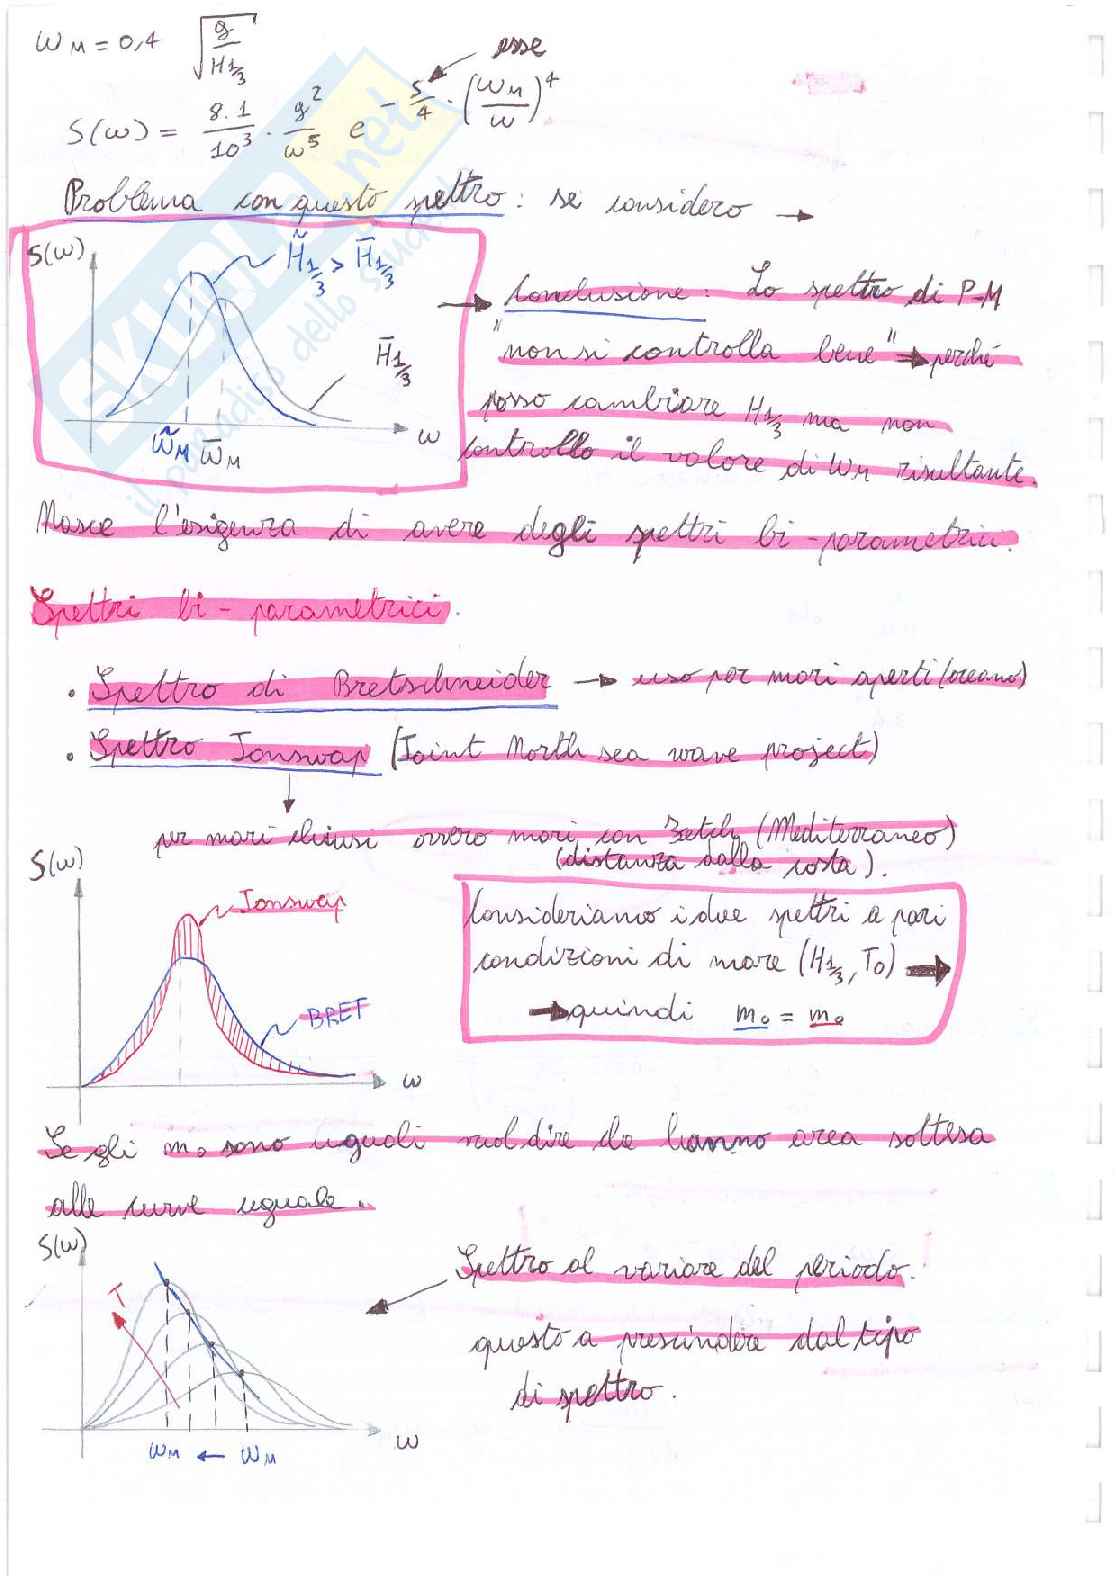 ω_M = 0,4 √(g/H_1/3)
esse
S(ω) = 8.1/10³ · g²/ω⁵ e^(- 5/4 · (ω_M/ω)⁴)
Problema con questo spettro: se considero →
S(ω) H̃_1/3 > H̄_1/3
H̄_1/3
ω
ω̃_M ω̄_M
→ Conclusione: Lo spettro di P-M
"non si controlla bene" → perché
posso cambiare H_1/3 ma non
controllo il valore di ω_M risultante.
Nasce l'esigenza di avere degli spettri bi-parametrici.
Spettri bi-parametrici.
• Spettro di Bretschneider → uso per mari aperti (oceano)
• Spettro Jonswap (Joint North sea wave project)
per mari chiusi ovvero mari con Fetch (Mediterraneo)
(distanza dalla costa).
S(ω)
Jonswap
BRET
ω
Consideriamo i due spettri a pari
condizioni di mare (H_1/3, T_0) →
→ quindi m_0 = m_0
Se gli m_0 sono uguali vuol dire che hanno area sottesa
alle curve uguale.
S(ω)
T
ω
ω_M ← ω_M
Spettro al variare del periodo.
questo a prescindere dal tipo
di spettro.
SKUOLA.net
il paradiso dello studente